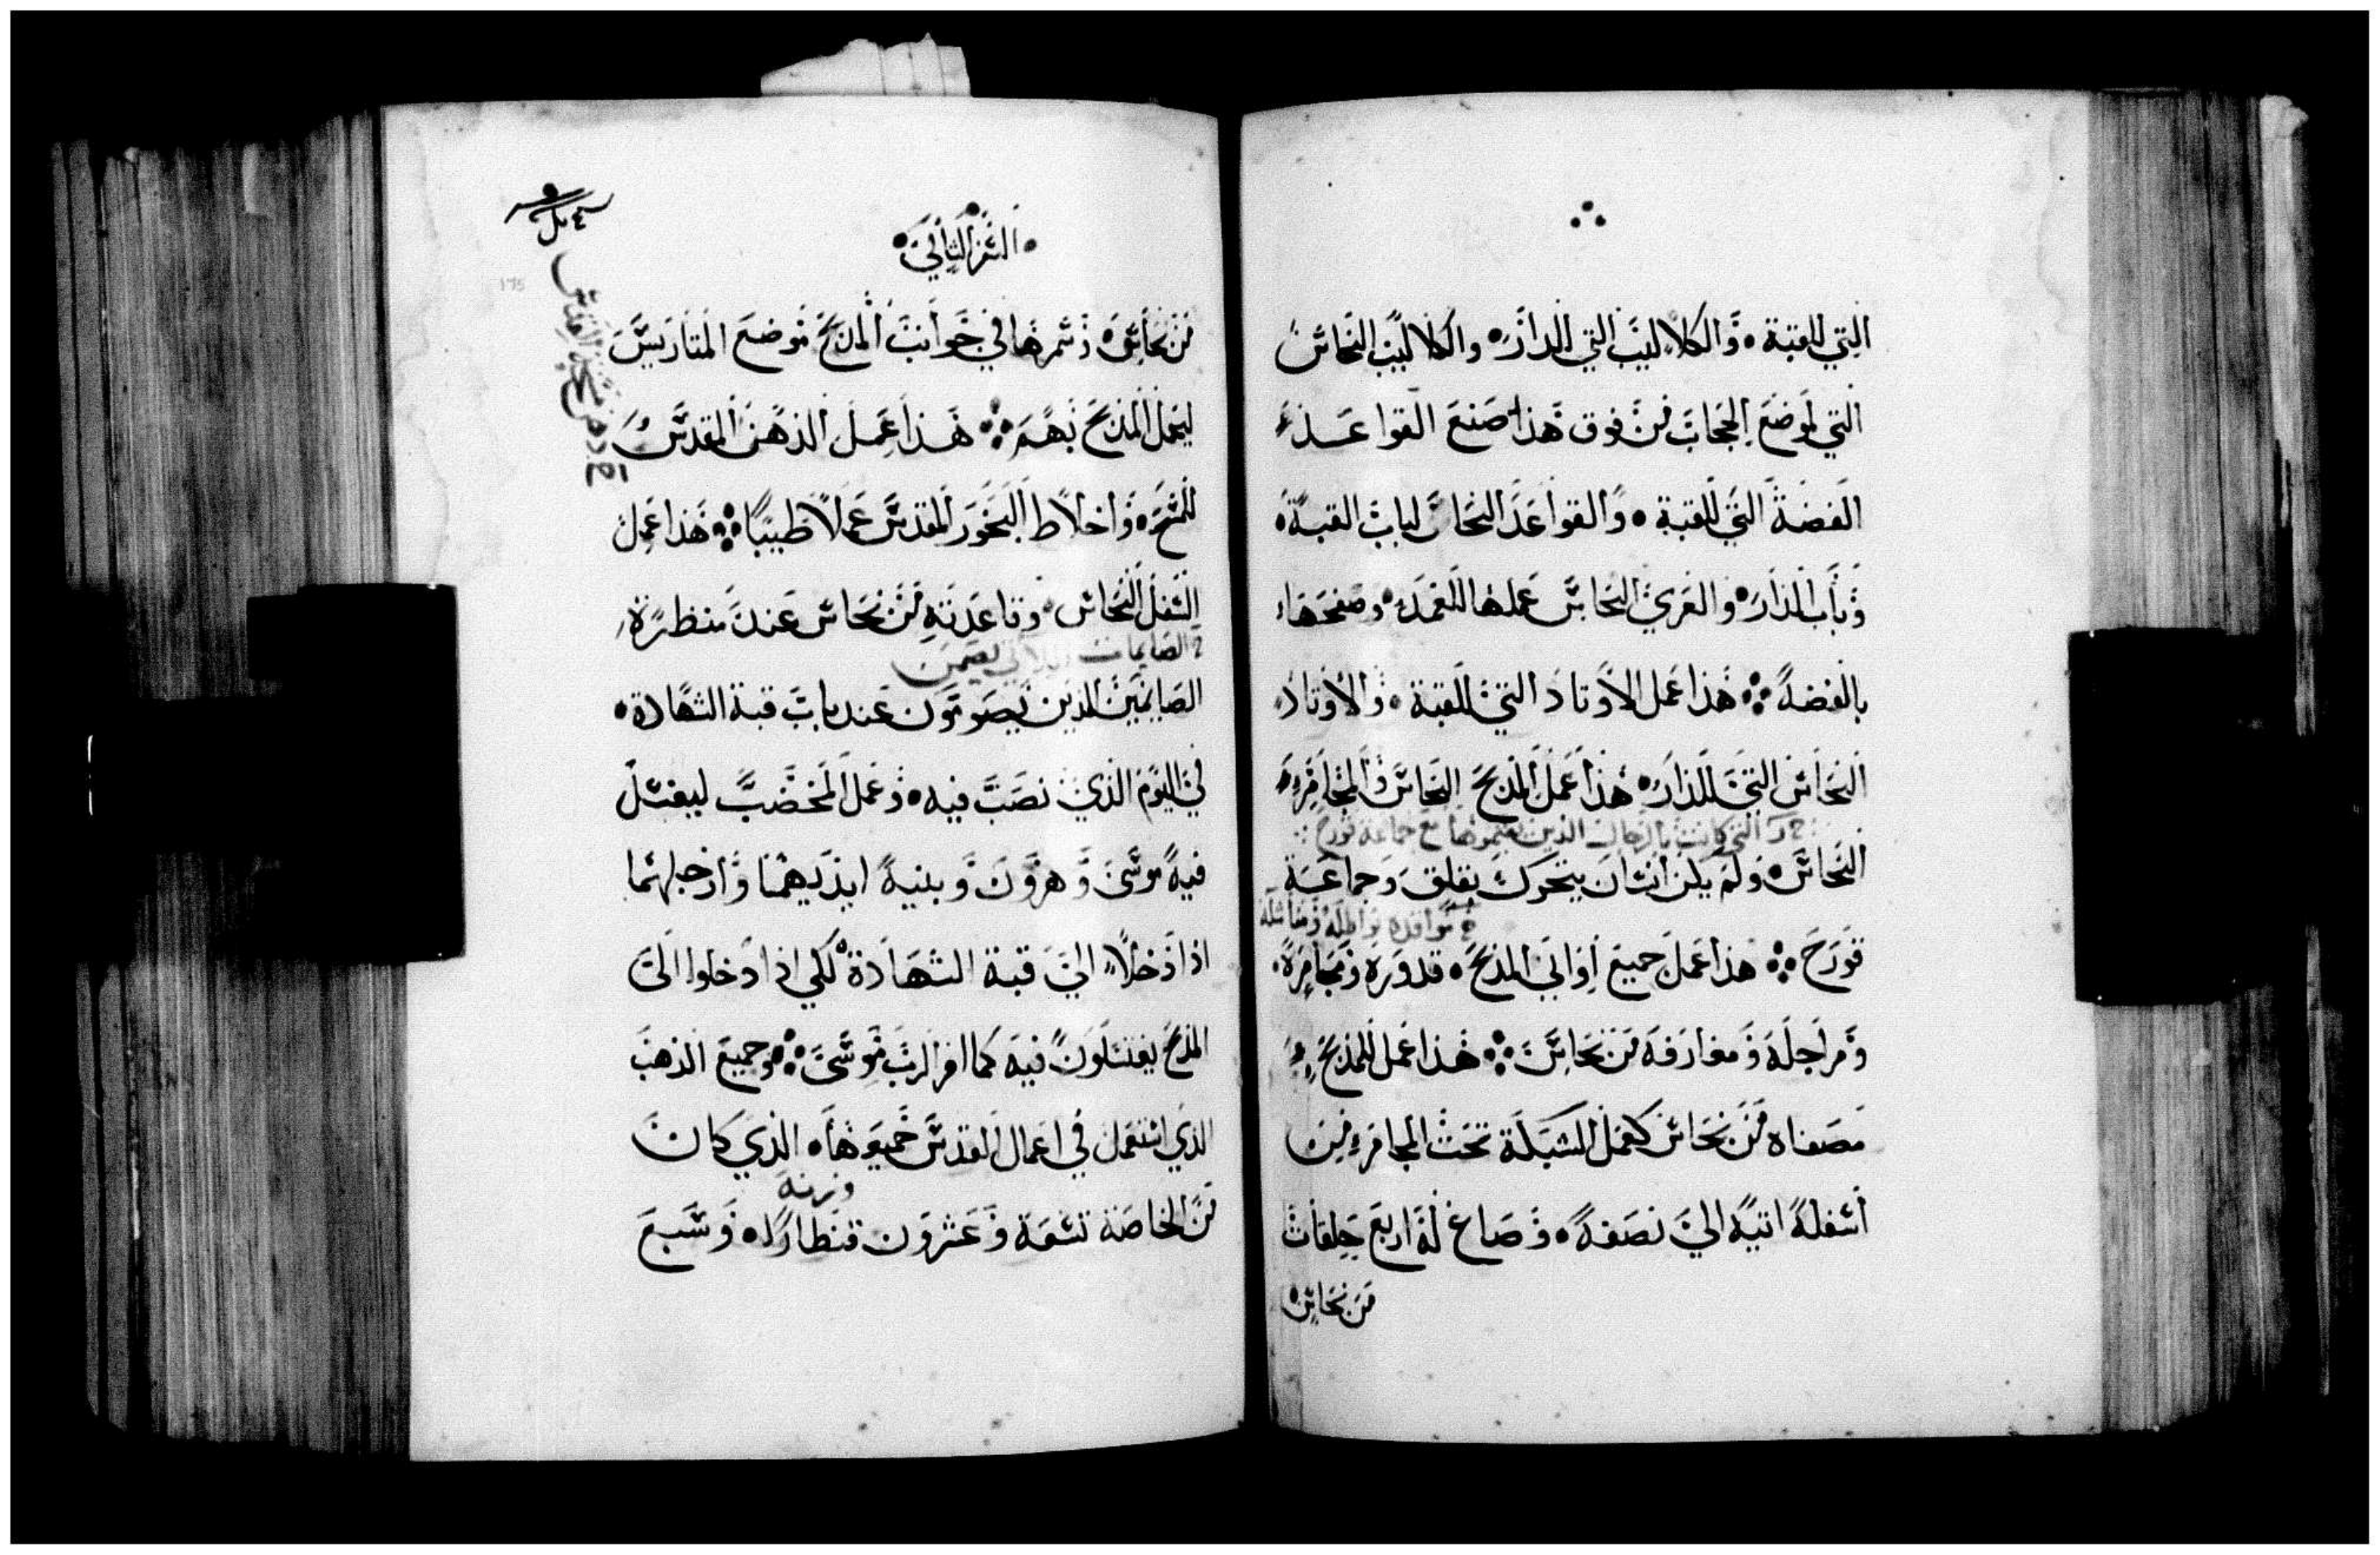 التي للقبة والكلاليب التي للدار والكلاليب النحاس
التي لموضع الحجاب من فوق هذا صنع القواعد
الفضة التي للقبة والقواعد النحاس لباب القبة
وباب الدار والعري النحاس عملها للعمد وصفحها
بالفضة هذا عمل الاوتاد التي للقبة والاوتاد
النحاس التي للدار هذا عمل المذبح النحاس والمجامر
التي كانت بالرجال الذين مع جماعة قورح
النحاس ولم يكن انسان يتحرك بقلق وجماعة
قورح هذا عمل جميع اواني المذبح قدوره ومجامره
ومراجله ومغارفه من نحاس هذا عمل للمذبح
مصفاه من نحاس كعمل الشبكة تحت المجامر من
اسفله اتيه الي نصفه وصاغ له اربع حلقات
من نحاس
السفر الثاني
من نحاس وسمرها في جوانب المذبح موضع المتاريس
ليحمل المذبح بهم هذا عمل الدهن المقدس
للمسح واخلاط البخور المقدس عملا طيبا هذا عمل
السفل النحاس وقاعدته من نحاس عند منظرة
الصايمات اللاتي يصمن
الصايمين الذين يصومون عند باب قبة الشهادة
في اليوم الذي نصب فيه وعمل المخضب ليغتسل
فيه موسى وهرون وبنيه ايديهما وارجلهما
اذا دخلا الي قبة الشهادة لكي اذا دخلوا الى
المذبح يغتسلون فيه كما امر الرب موسى وجميع الذهب
الذي استعمل في اعمال القدس جميعها الذي كان
وزنه
من الخاصة تسعة وعشرون قنطارا وسبع